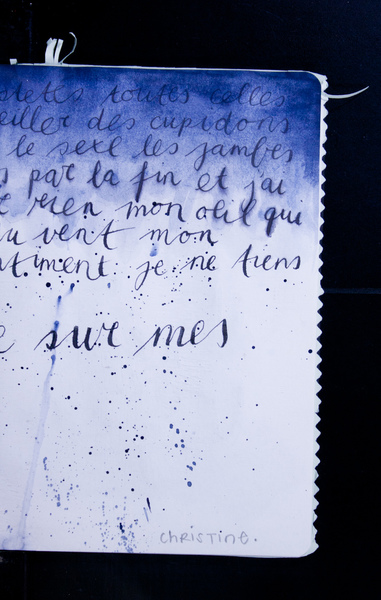 toutes celles
eiller des cupidons
le sexe les jambes
s par la fin et j'ai
rien mon œil qui
u vent mon
ntiment je ne tiens
e sur mes
Christine.